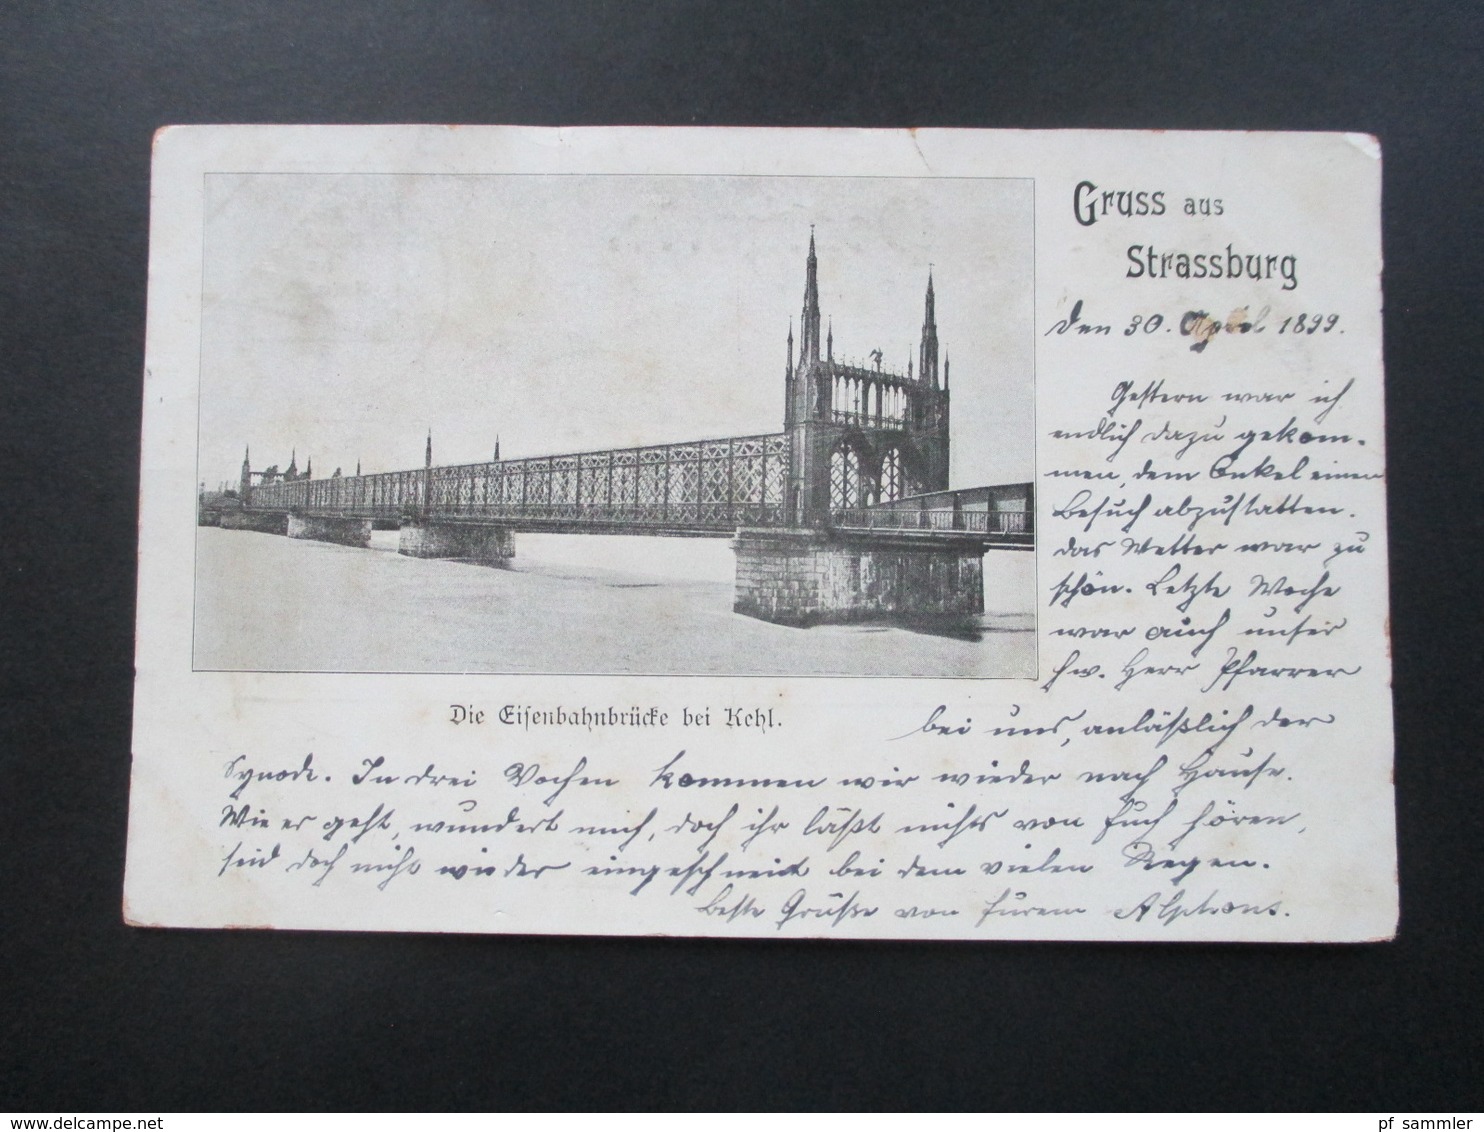 Gruss aus
Strassburg
Den 30. April 1899.
Gestern war ich
endlich dazu gekom-
men, dem Onkel einen
Besuch abzustatten.
Das Wetter war zu
schön. Letzte Woche
war auch unser
Hw. Herr Pfarrer
bei uns, anläßlich der
Synode. In drei Wochen kommen wir wieder nach Hause.
Wie es geht, wundert mich, doch ihr läßt nichts von Euch hören,
seid doch nicht wieder eingeschneit bei dem vielen Regen.
Beste Grüße von Eurem Alphons.
Die Eisenbahnbrücke bei Kehl.
pf_sammler